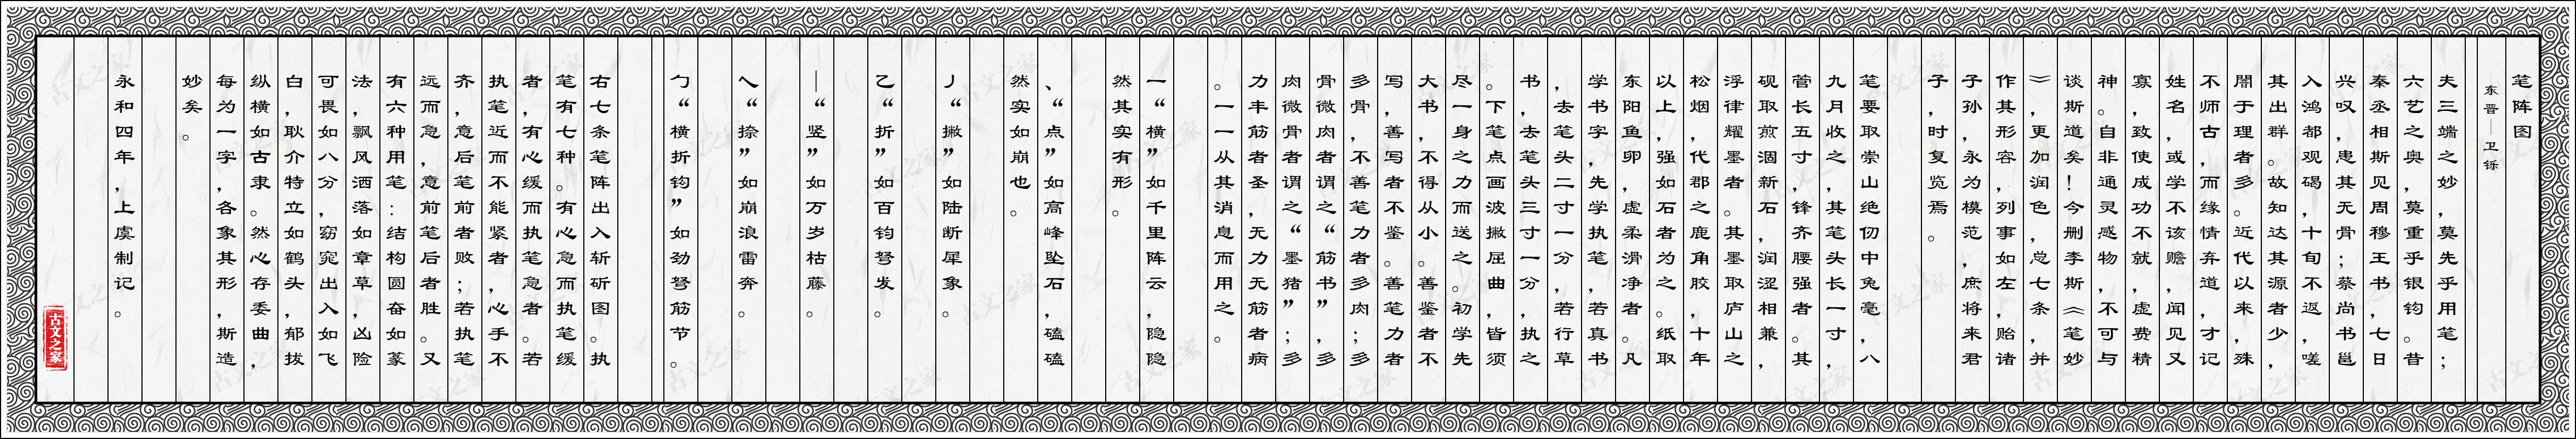 笔阵图
东晋—卫铄
夫三端之妙，莫先乎用笔；
六艺之奥，莫重乎银钩。昔
秦丞相斯见周穆王书，七日
兴叹，患其无骨；蔡尚书邕
入鸿都观碣，十旬不返，嗟
其出群。故知达其源者少，
闇于理者多。近代以来，殊
不师古，而缘情弃道，才记
姓名，或学不该赡，闻见又
寡，致使成功不就，虚费精
神。自非通灵感物，不可与
谈斯道矣！今删李斯《笔妙
》，更加润色，总七条，并
作其形容，列事如左，贻诸
子孙，永为模范，庶将来君
子，时复览焉。
笔要取崇山绝仞中兔毫，八
九月收之，其笔头长一寸，
管长五寸，锋齐腰强者。其
砚取煎涸新石，润涩相兼，
浮律耀墨者。其墨取庐山之
松烟，代郡之鹿角胶，十年
以上，强如石者为之。纸取
东阳鱼卵，虚柔滑净者。凡
学书字，先学执笔，若真书
，去笔头二寸一分，若行草
书，去笔头三寸一分，执之
。下笔点画波撇屈曲，皆须
尽一身之力而送之。初学先
大书，不得从小。善鉴者不
写，善写者不鉴。善笔力者
多骨，不善笔力者多肉；多
骨微肉者谓之“筋书”，多
肉微骨者谓之“墨猪”；多
力丰筋者圣，无力无筋者病
。一一从其消息而用之。
一“横”如千里阵云，隐隐
然其实有形。
、“点”如高峰坠石，磕磕
然实如崩也。
丿“撇”如陆断犀象。
乙“折”如百钧弩发。
｜“竖”如万岁枯藤。
乀“捺”如崩浪雷奔。
勹“横折钩”如劲弩筋节。
右七条笔阵出入斩斫图。执
笔有七种。有心急而执笔缓
者，有心缓而执笔急者。若
执笔近而不能紧者，心手不
齐，意后笔前者败；若执笔
远而急，意前笔后者胜。又
有六种用笔：结构圆奋如篆
法，飘风洒落如章草，凶险
可畏如八分，窈窕出入如飞
白，耿介特立如鹤头，郁拔
纵横如古隶。然心存委曲，
每为一字，各象其形，斯造
妙矣。
永和四年，上虞制记。
古文之家